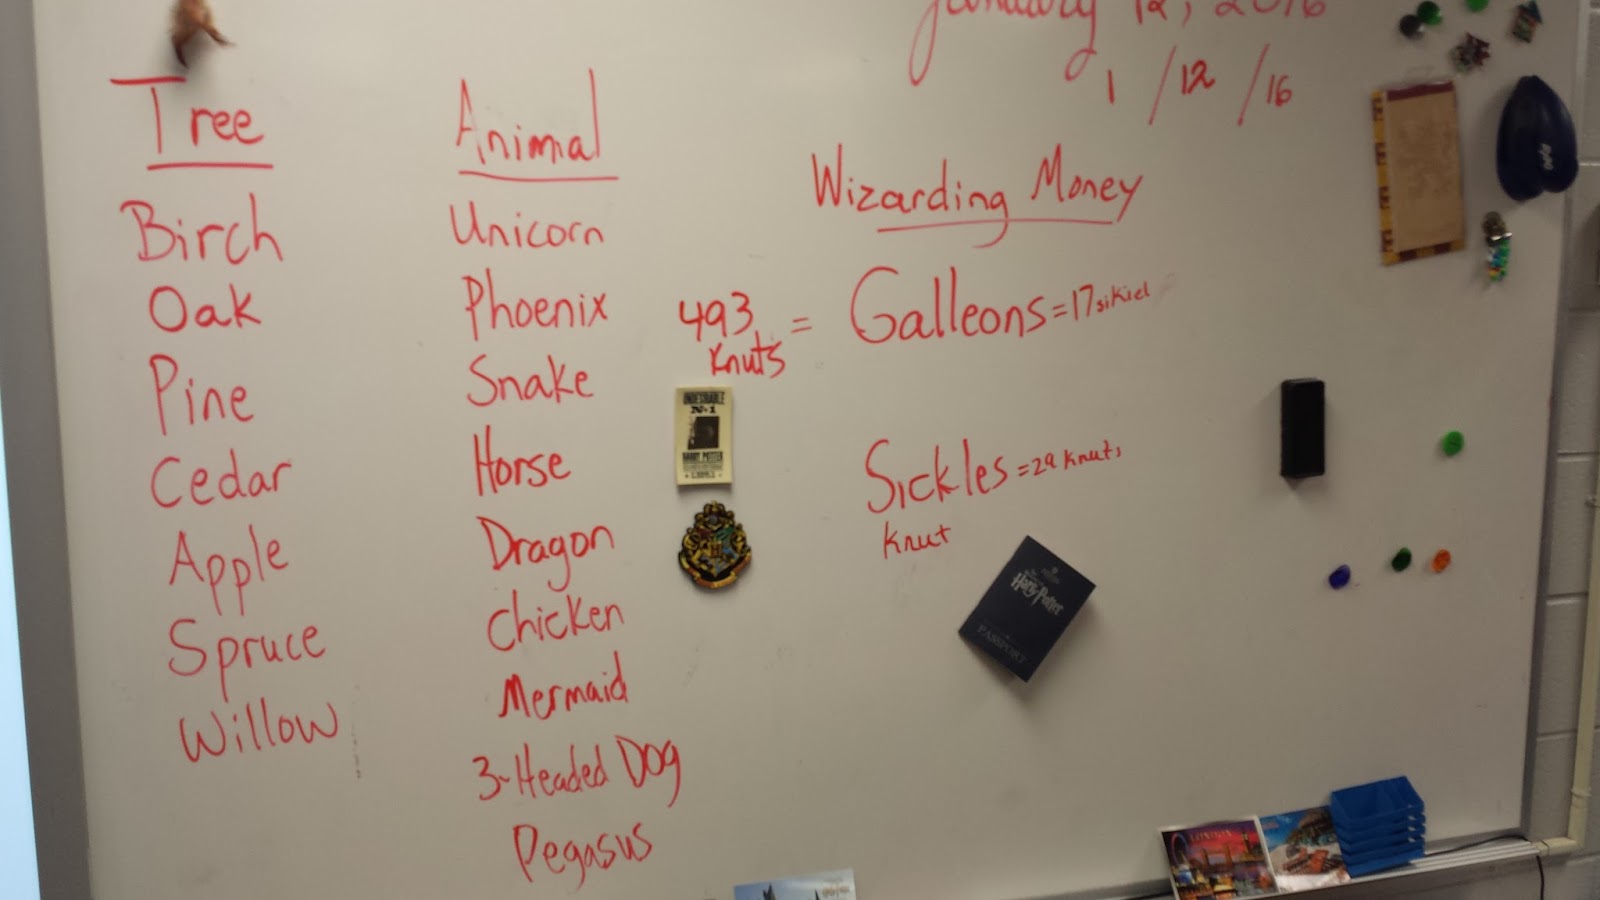 January 12, 2016
1 / 12 / 16
Tree
Birch
Oak
Pine
Cedar
Apple
Spruce
Willow
Animal
Unicorn
Phoenix
Snake
Horse
Dragon
Chicken
Mermaid
3-Headed Dog
Pegasus
Wizarding Money
493 Knuts = Galleons = 17 sikiel
Sickles = 29 Knuts
Knut
UNDESIRABLE
No 1
HARRY POTTER
Harry Potter
PASSPORT
LONDON